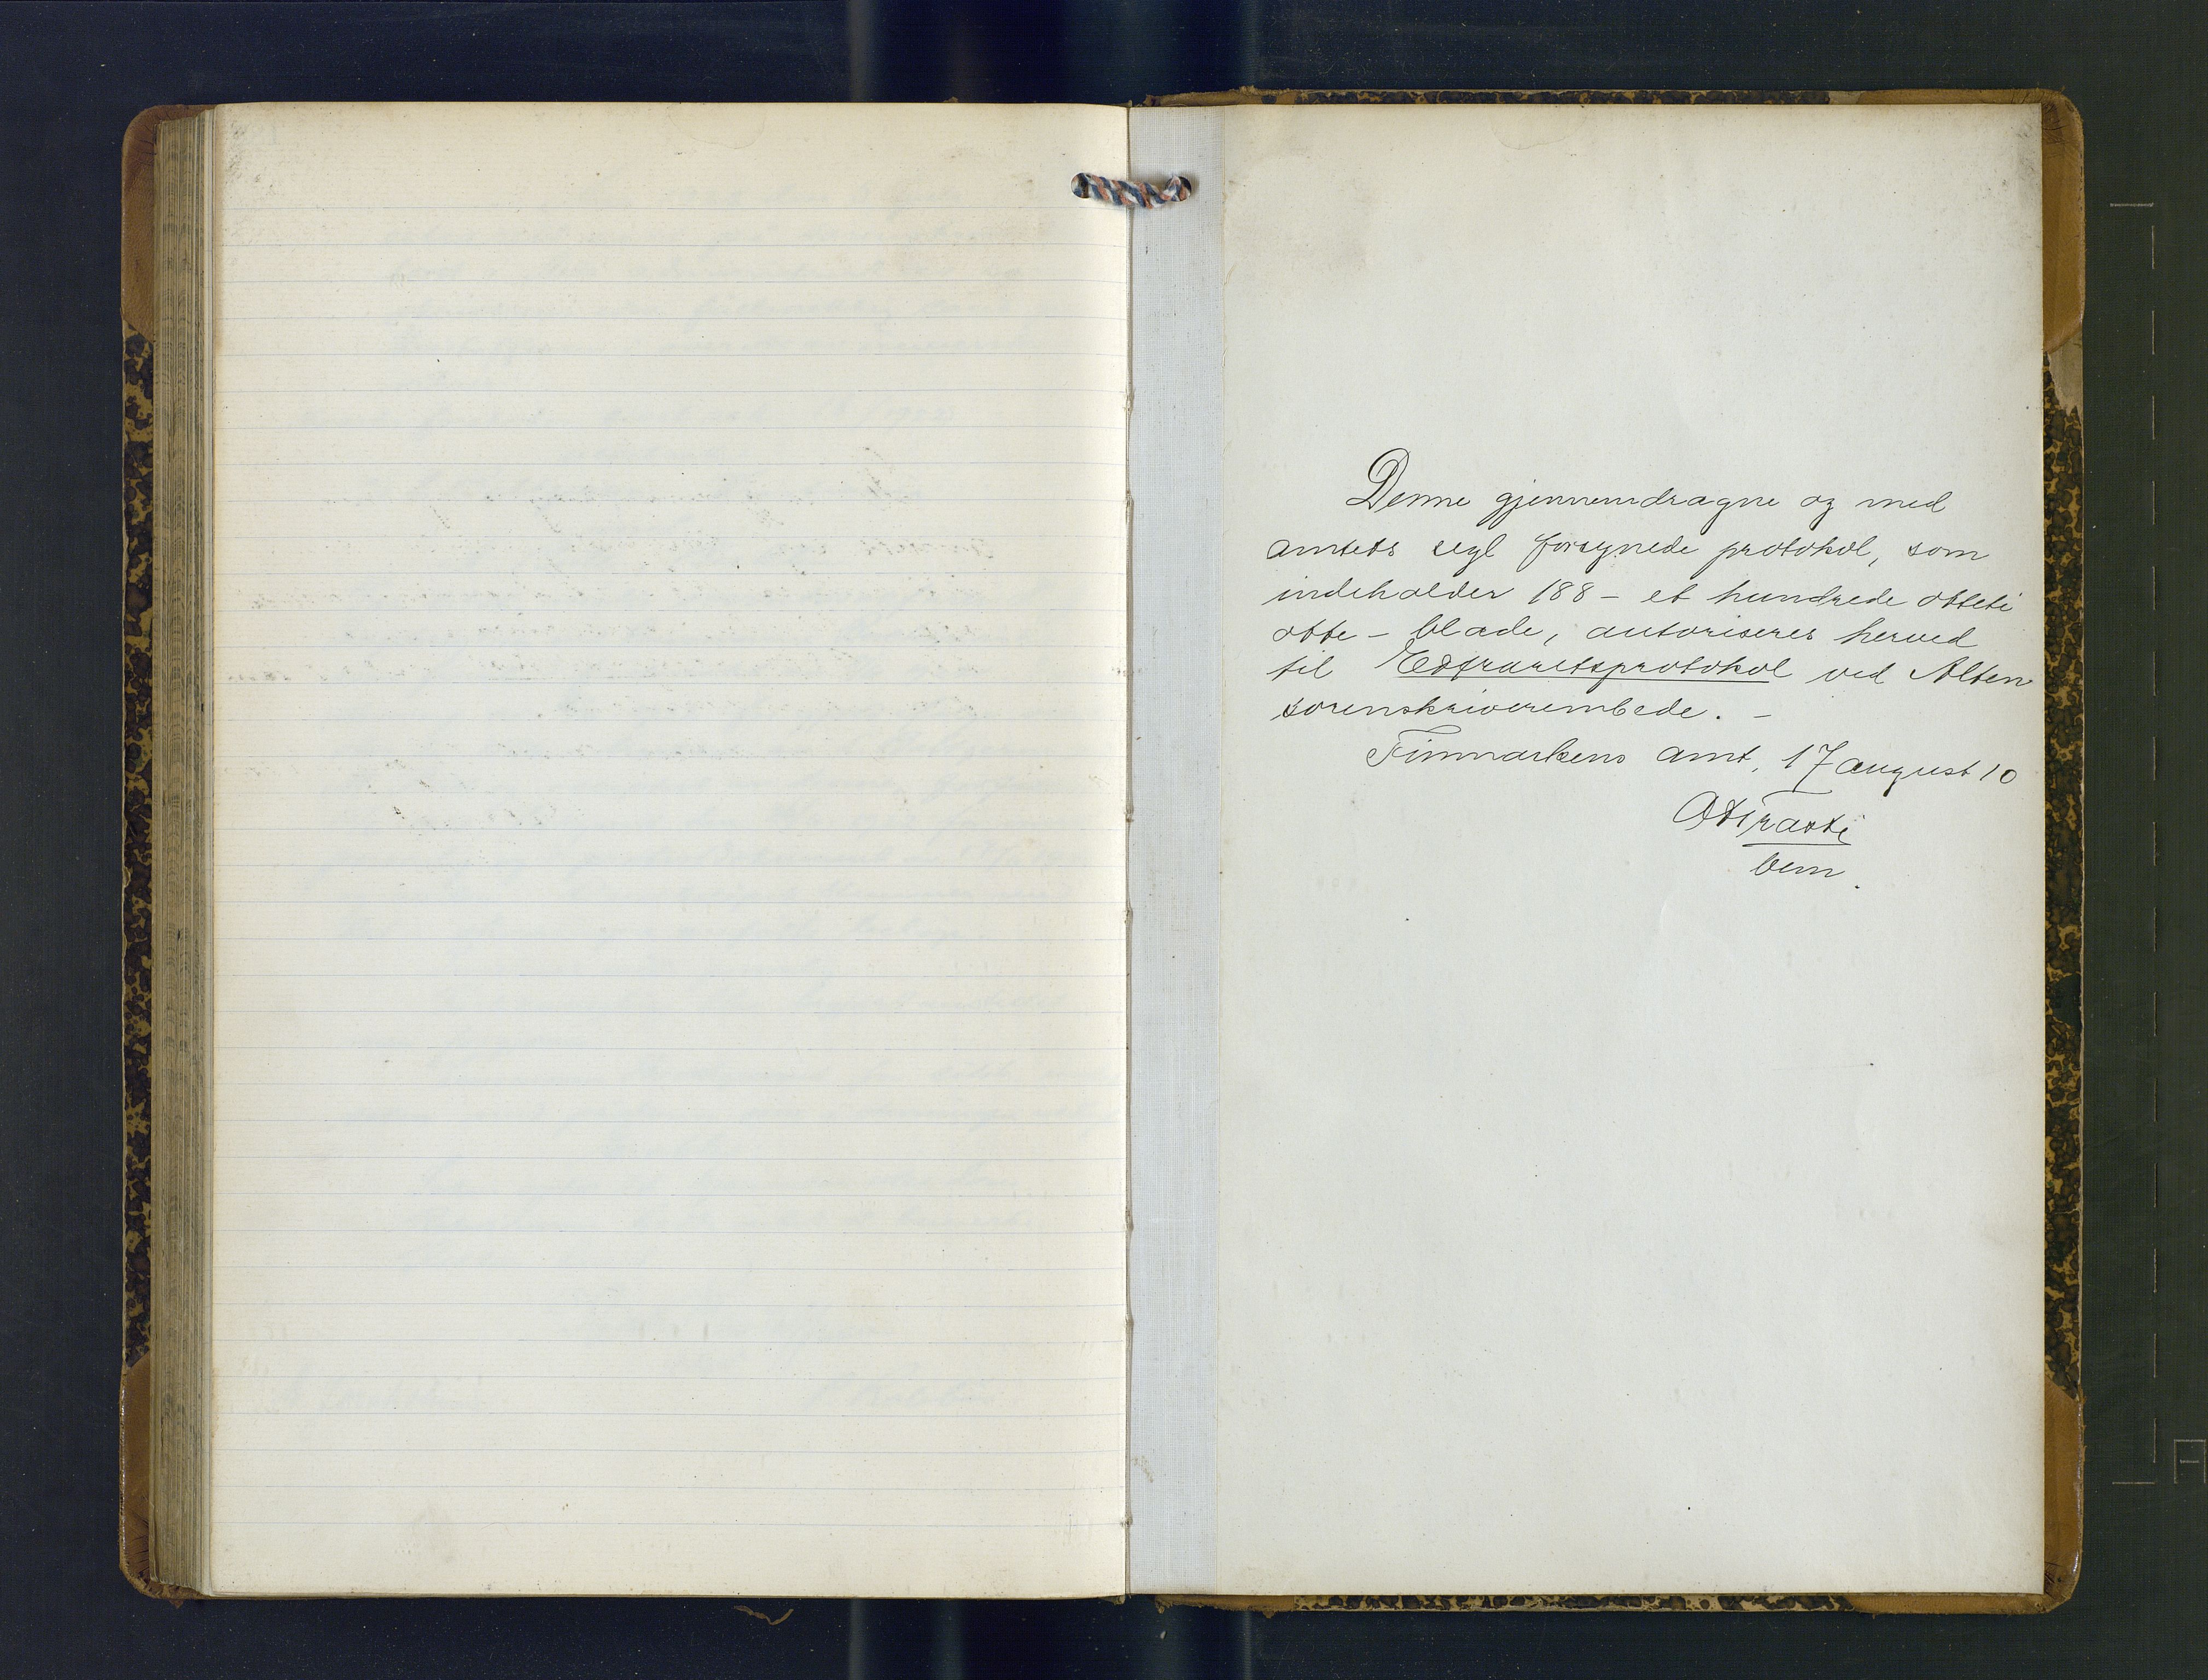 Denne gjennemdragne og med
amtets segl forsynede protokol, som
indeholder 188 – et hundrede otteti
otte – blade, autoriseres herved
til Extraretsprotokol ved Alten
sorenskriverembede. –
Finmarkens amt, 17 august 10
bem.